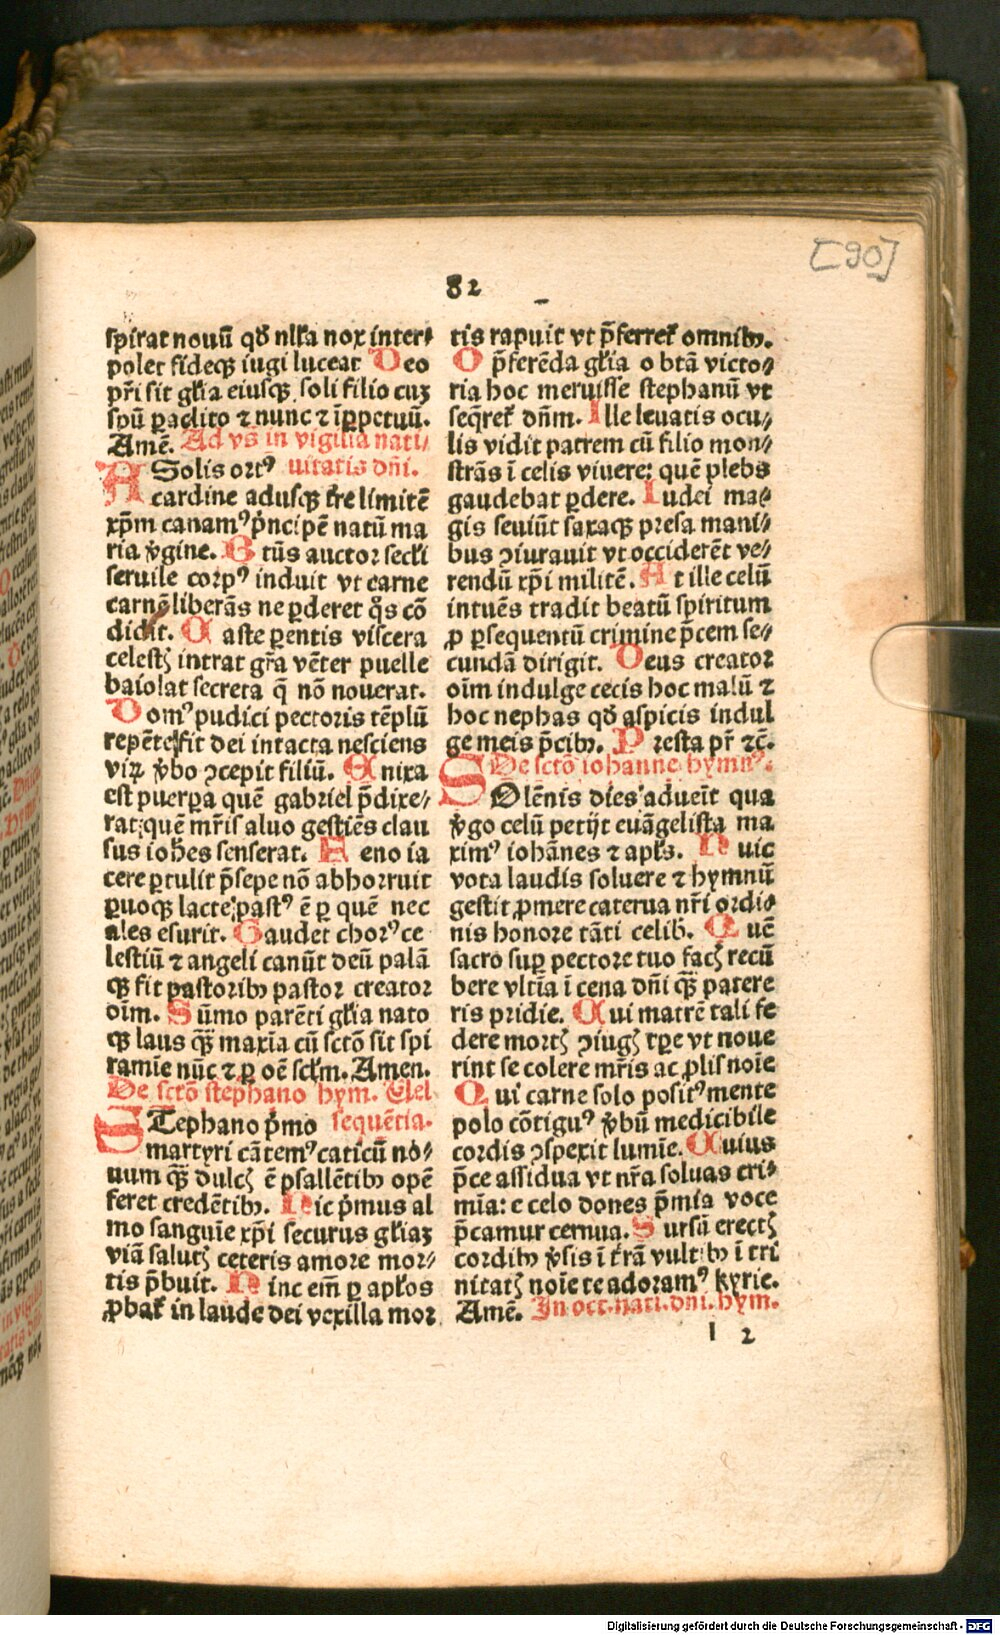 [90]
82
spirat nouū qđ nłła nox inter⸗
polet fideqꝫ iugi luceat Deo
pr̄i sit głia eiusqꝫ soli filio cuꝫ
spū ꝑaclito ⁊ nunc ⁊ īꝑpetuū.
Amē. Ad vs̄ in vigilia nati⸗
A Solis ortꝰ uitatis dn̄i.
cardine adusqꝫ tr̄e limitē
xp̄m canamꝰ pͥncipē natū ma
ria ꝟgine. Btūs auctor secłi
seruile corpꝰ induit vt carne
carnē liberās ne ꝑderet qͦs cō
didit. Caste ꝑentis viscera
celestꝭ intrat gr̄a vēter puelle
baiolat secreta q̄ nō nouerat.
Domꝰ pudici pectoris tēplū
repēte fit dei intacta nesciens
virꝝ ꝟbo ꝯcepit filiū. Enixa
est puerpa quē gabriel p̄dixe⸗
rat: quē mr̄is aluo gestiēs clau
sus ioh̄es senserat. Feno ia
cere ꝑtulit p̄sepe nō abhorruit
ꝑuoqꝫ lacte pastꝰ ē ꝑ quē nec
ales esurit. Gaudet chorꝰ ce
lestiū ⁊ angeli canūt deū palā
qꝫ fit pastoribꝫ pastor creator
oīm. Sūmo parēti głia nato
qꝫ laus qꝫ̄ maxīa cū sctō sit spi
ramīe nūc ⁊ ꝑ oē scłm. Amen.
De sctō stephano hym. Uel
STephano pͥmo sequētia.
martyri cātemꝰ cāticū no⸗
uum qꝫ̄ dulcꝭ ē psallētibꝫ opē
feret credētibꝫ. Hic pͥmus al
mo sanguīe xp̄i securus głiaꝫ
viā salutꝭ ceteris amore mor⸗
tis p̄buit. Hinc em̄ ꝑ apłos
ꝓbał in laude dei vexilla mor
tis rapuit vt p̄ferrel omnibꝫ.
O p̄ferēda głia o btā victo⸗
ria hoc meruisse stephanū vt
seq̄rel dn̄m. Ille leuatis ocu⸗
lis vidit patrem cū filio mon⸗
strās ī celis viuere: quē plebs
gaudebat ꝑdere. Iudei ma⸗
gis seuiūt saxaqꝫ presa mani⸗
bus ꝯiurauit vt occiderēt ve⸗
rendū xp̄i militē. At ille celū
intuēs tradit beatū spiritum
ꝓ ꝑsequentū crimine p̄cem se⸗
cundā dirigit. Deus creator
oīm indulge cecis hoc malū ⁊
hoc nephas qđ aspicis indul
ge meis p̄cibꝫ. Presta pr̄ ⁊c̄.
De sctō iohanne hymnꝰ.
SOlēnis dies adueīt qua
ꝟgo celū petijt euāgelista ma
ximꝰ iohānes ⁊ apłs. Huic
vota laudis soluere ⁊ hymnū
gestit ꝓmere caterua nr̄i ordi⸗
nis honore tāti celibꝭ. Quē
sacro suꝑ pectore tuo facꝭ recū
bere vltīa ī cena dn̄i qꝫ̄ patere
ris pridie. Qui matrē tali fe
dere mortꝭ ꝯiugꝭ tp̄e vt noue
rint se colere mr̄is ac ꝓlis noīe
Qui carne solo positꝰ mente
polo cōtiguꝰ ꝟbū medicibile
cordis ꝯspexit lumīe. Cuius
p̄ce assidua vt nr̄a soluas cri⸗
mīa: e celo dones p̄mia voce
p̄camur cernua. Sursū erectꝭ
cordibꝫ ꝟsis ī tr̄ā vultibꝫ ī tri
nitatꝭ noīe te adoramꝰ kyrie.
Amē. In oct. nati. dn̄i. hym.
l 2
Digitalisierung gefördert durch die Deutsche Forschungsgemeinschaft - DFG